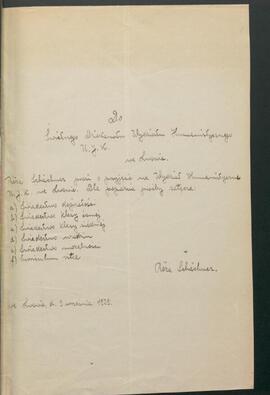 Do
Świetnego Dziekanatu Wydziału Humanistycznego
U. J. K.
we Lwowie.
Róża Schächner prosi o przyjęcie na Wydział Humanistyczny
U. J. K. we Lwowie. Dla poparcia prośby załącza
a) Świadectwo dojrzałości
b) Świadectwo klasy ósmej
c) Świadectwo klasy siódmej
d) Świadectwo
e) Świadectwo moralności
f) Curriculum vitae
Róża Schächner.
we Lwowie, d. września